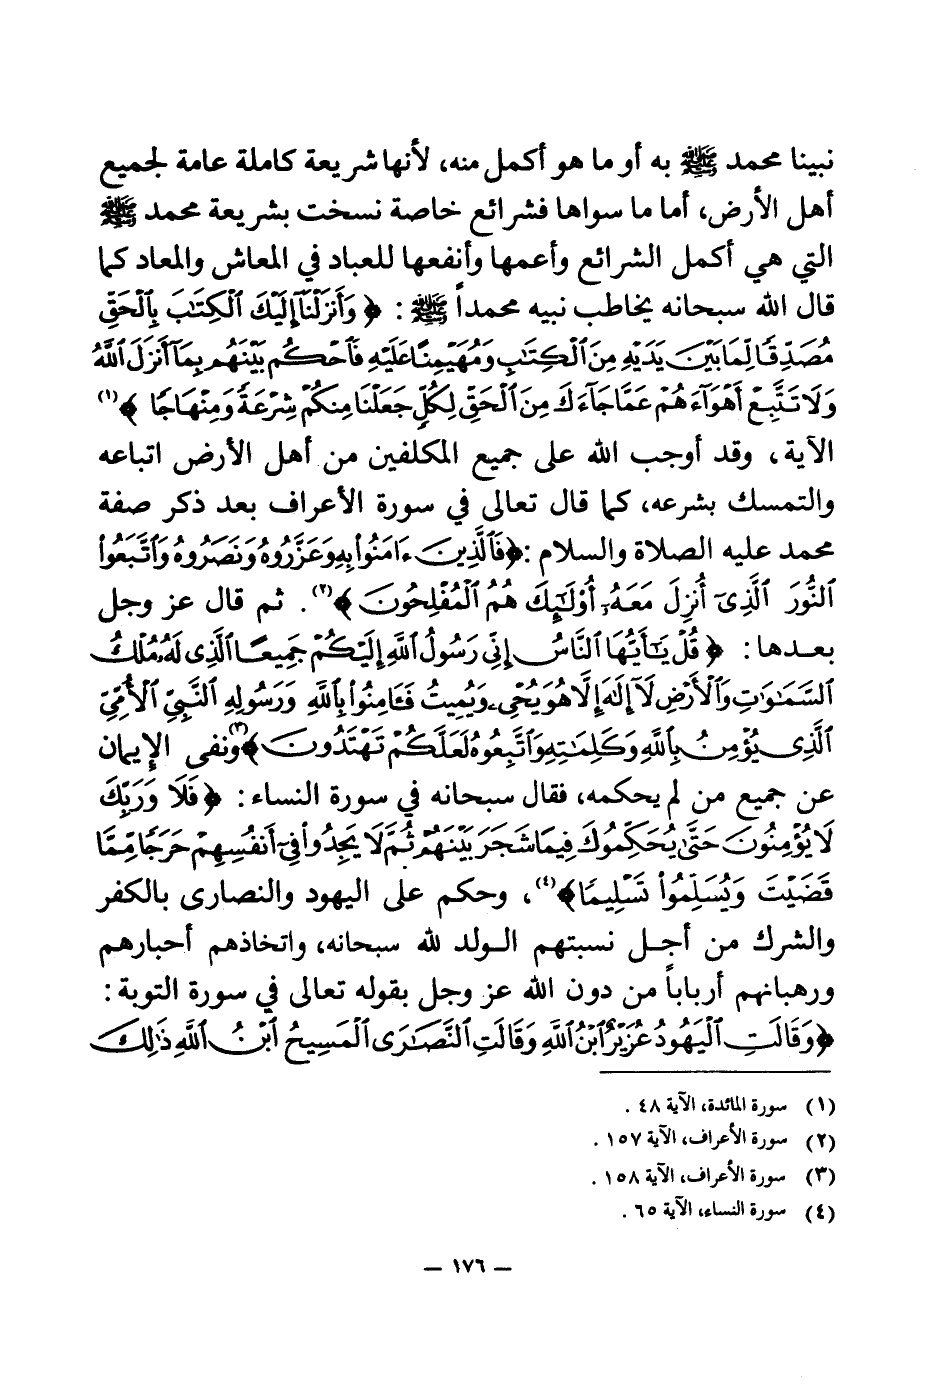 نبينا محمد ﷺ به أو ما هو أكمل منه، لأنها شريعة كاملة عامة لجميع
أهل الأرض، أما ما سواها فشرائع خاصة نسخت بشريعة محمد ﷺ
التي هي أكمل الشرائع وأعمها وأنفعها للعباد في المعاش والمعاد كما
قال الله سبحانه يخاطب نبيه محمداً ﷺ : ﴿ وَأَنزَلْنَآ إِلَيْكَ ٱلْكِتَٰبَ بِٱلْحَقِّ
مُصَدِّقًا لِّمَا بَيْنَ يَدَيْهِ مِنَ ٱلْكِتَٰبِ وَمُهَيْمِنًا عَلَيْهِ فَٱحْكُم بَيْنَهُم بِمَآ أَنزَلَ ٱللَّهُ
وَلَا تَتَّبِعْ أَهْوَآءَهُمْ عَمَّا جَآءَكَ مِنَ ٱلْحَقِّ لِكُلٍّ جَعَلْنَا مِنكُمْ شِرْعَةً وَمِنْهَاجًا ﴾(١)
الآية، وقد أوجب الله على جميع المكلفين من أهل الأرض اتباعه
والتمسك بشرعه، كما قال تعالى في سورة الأعراف بعد ذكر صفة
محمد عليه الصلاة والسلام :﴿فَٱلَّذِينَ ءَامَنُوا۟ بِهِۦ وَعَزَّرُوهُ وَنَصَرُوهُ وَٱتَّبَعُوا۟
ٱلنُّورَ ٱلَّذِىٓ أُنزِلَ مَعَهُۥٓ أُو۟لَٰٓئِكَ هُمُ ٱلْمُفْلِحُونَ ﴾(٢). ثم قال عز وجل
بعدها: ﴿ قُلْ يَٰٓأَيُّهَا ٱلنَّاسُ إِنِّى رَسُولُ ٱللَّهِ إِلَيْكُمْ جَمِيعًا ٱلَّذِى لَهُۥ مُلْكُ
ٱلسَّمَٰوَٰتِ وَٱلْأَرْضِ لَآ إِلَٰهَ إِلَّا هُوَ يُحْىِۦ وَيُمِيتُ فَـَٔامِنُوا۟ بِٱللَّهِ وَرَسُولِهِ ٱلنَّبِىِّ ٱلْأُمِّىِّ
ٱلَّذِى يُؤْمِنُ بِٱللَّهِ وَكَلِمَٰتِهِۦ وَٱتَّبِعُوهُ لَعَلَّكُمْ تَهْتَدُونَ﴾(٣) ونفى الإيمان
عن جميع من لم يحكمه، فقال سبحانه في سورة النساء: ﴿ فَلَا وَرَبِّكَ
لَا يُؤْمِنُونَ حَتَّىٰ يُحَكِّمُوكَ فِيمَا شَجَرَ بَيْنَهُمْ ثُمَّ لَا يَجِدُوا۟ فِىٓ أَنفُسِهِمْ حَرَجًا مِّمَّا
قَضَيْتَ وَيُسَلِّمُوا۟ تَسْلِيمًا﴾(٤)، وحكم على اليهود والنصارى بالكفر
والشرك من أجل نسبتهم الولد لله سبحانه، واتخاذهم أحبارهم
ورهبانهم أرباباً من دون الله عز وجل بقوله تعالى في سورة التوبة:
﴿وَقَالَتِ ٱلْيَهُودُ عُزَيْرٌ ٱبْنُ ٱللَّهِ وَقَالَتِ ٱلنَّصَٰرَى ٱلْمَسِيحُ ٱبْنُ ٱللَّهِ ذَٰلِكَ
(١) سورة المائدة، الآية ٤٨ .
(٢) سورة الأعراف، الآية ١٥٧ .
(٣) سورة الأعراف، الآية ١٥٨ .
(٤) سورة النساء، الآية ٦٥ .
– ١٧٦ –